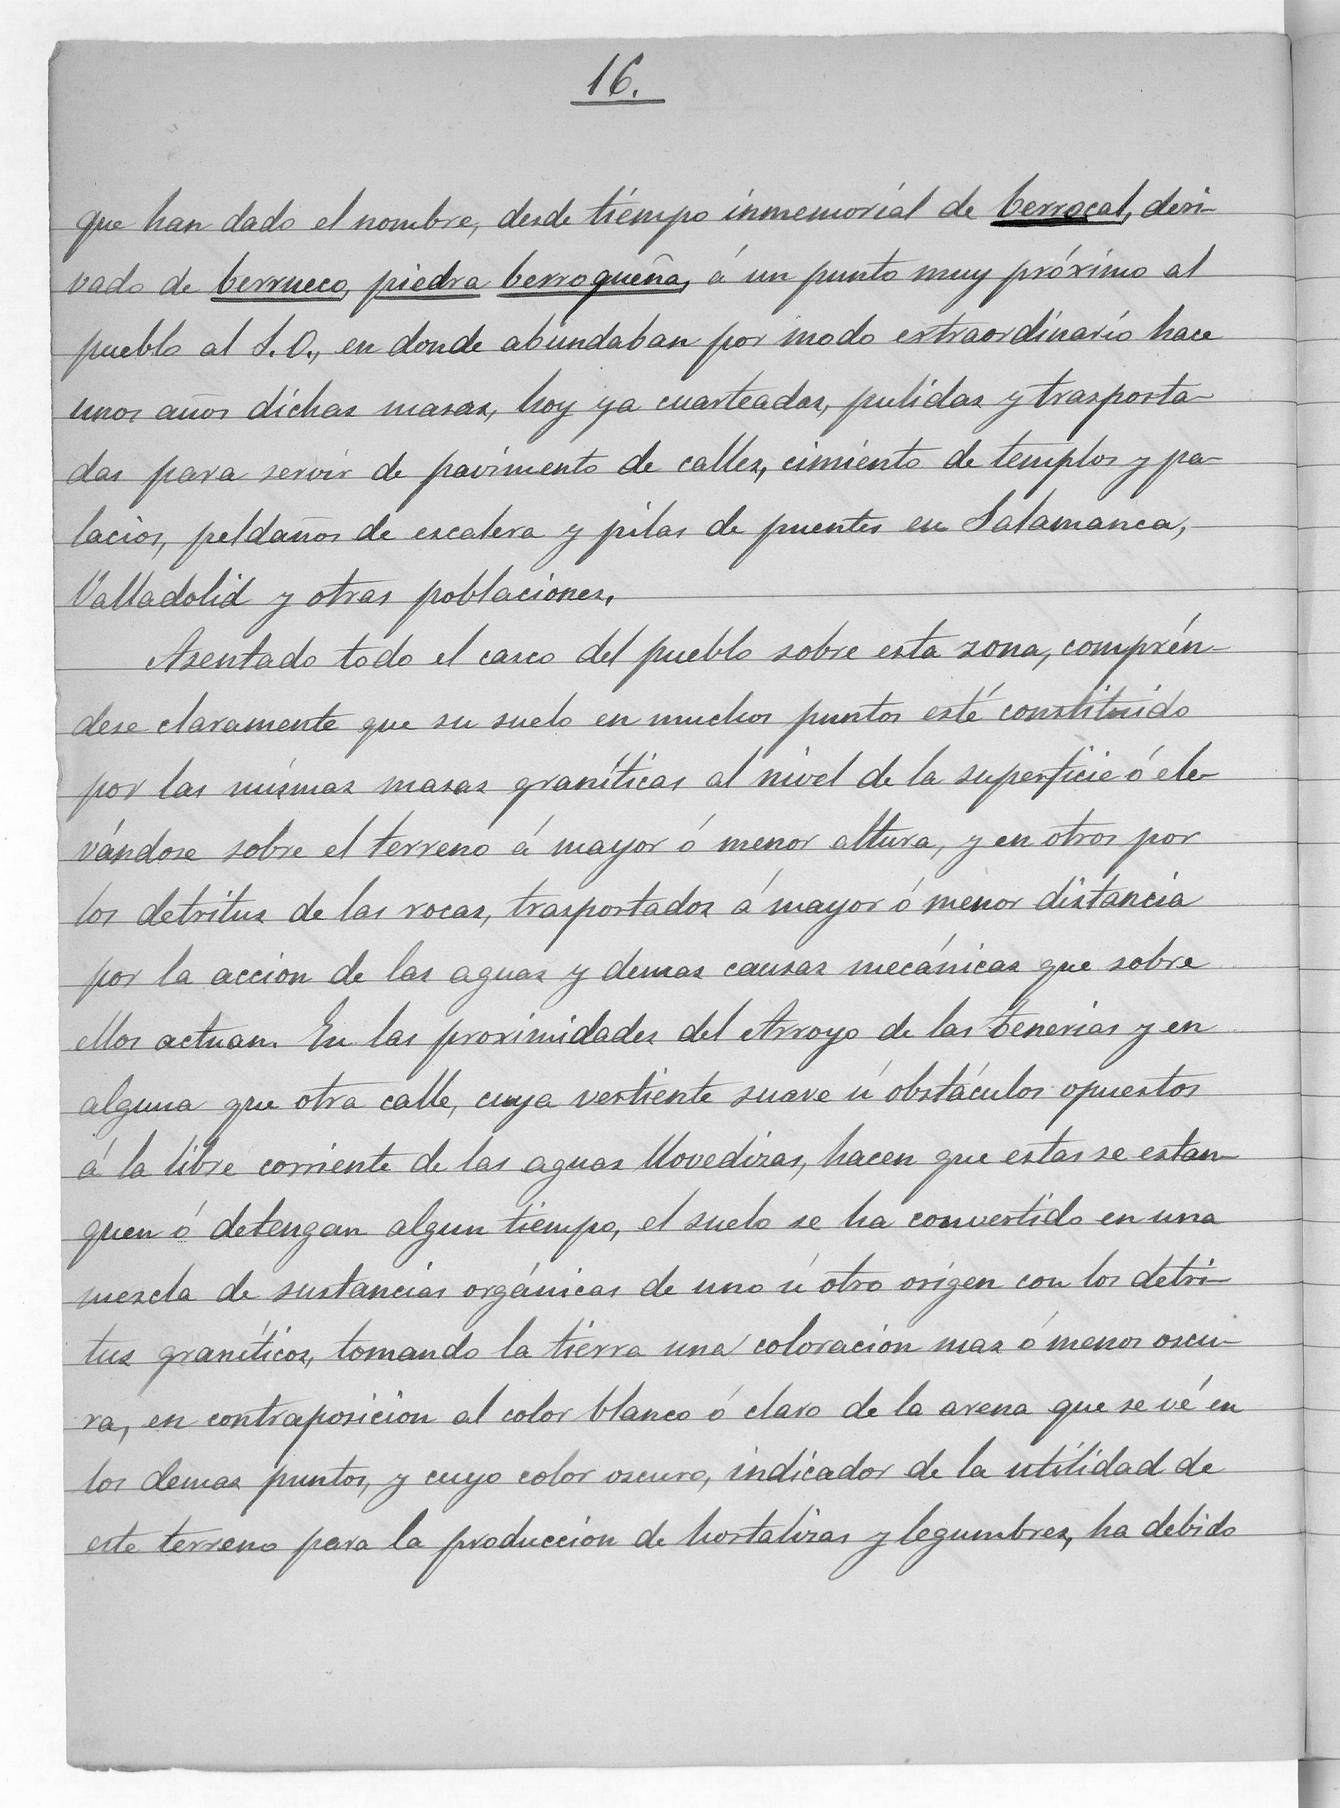 16.
que han dado el nombre, desde tiempo inmemorial de berrocal, deri-
vado de berrueco, piedra berroqueña, á un punto muy próximo al
pueblo al S.O., en donde abundaban por modo extraordinario hace
unos años dichas masas, hoy ya cuarteadas, pulidas y trasporta-
das para servir de pavimento de calles, cimiento de templos y pa-
lacios, peldaños de escalera y pilas de puentes en Salamanca,
Valladolid y otras poblaciones.
Asentado todo el casco del pueblo sobre esta zona, comprén-
dese claramente que su suelo en muchos puntos esté constituido
por las mismas masas graníticas al nivel de la superficie ó ele-
vándose sobre el terreno á mayor ó menor altura, y en otros por
los detritus de las rocas, trasportados á mayor ó menor distancia
por la accion de las aguas y demas causas mecánicas que sobre
ellos actuan. En las proximidades del Arroyo de las tenerias y en
alguna que otra calle, cuya vertiente suave ú obstáculos opuestos
á la libre corriente de las aguas llovedizas, hacen que estas se estan-
quen ó detengan algun tiempo, el suelo se ha convertido en una
mezcla de sustancias orgánicas de uno ú otro orígen con los detri-
tus graníticos, tomando la tierra una coloracion mas ó menos oscu-
ra, en contraposicion al color blanco ó claro de la arena que se vé en
los demas puntos, y cuyo color oscuro, indicador de la utilidad de
este terreno para la produccion de hortalizas y legumbres, ha debido